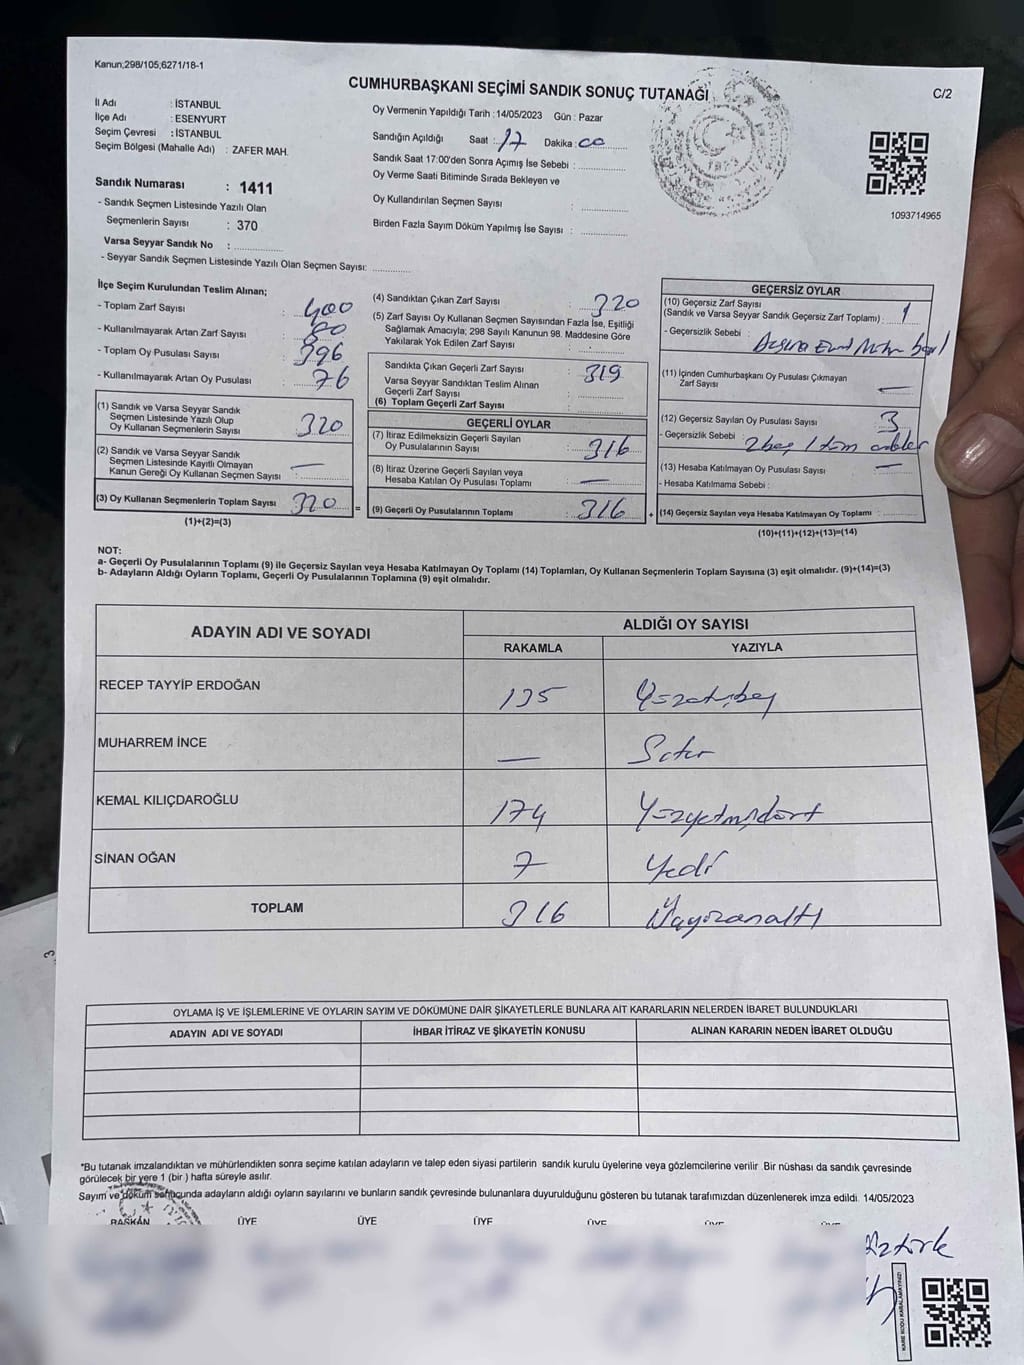 Kanun;298/105,6271/18-1
CUMHURBAŞKANI SEÇİMİ SANDIK SONUÇ TUTANAĞI
C/2
İl Adı : İSTANBUL
İlçe Adı : ESENYURT
Seçim Çevresi : İSTANBUL
Seçim Bölgesi (Mahalle Adı) : ZAFER MAH.
Oy Vermenin Yapıldığı Tarih :14/05/2023 Gün : Pazar
Sandığın Açıldığı Saat : 17 Dakika : 00
Sandık Saat 17:00'den Sonra Açımış İse Sebebi :
Oy Verme Saati Bitiminde Sırada Bekleyen ve
Oy Kullandırılan Seçmen Sayısı :
Birden Fazla Sayım Döküm Yapılmış İse Sayısı :
1093714965
Sandık Numarası : 1411
- Sandık Seçmen Listesinde Yazılı Olan
Seçmenlerin Sayısı : 370
Varsa Seyyar Sandık No :
- Seyyar Sandık Seçmen Listesinde Yazılı Olan Seçmen Sayısı:
İlçe Seçim Kurulundan Teslim Alınan;
- Toplam Zarf Sayısı : 400
- Kullanılmayarak Artan Zarf Sayısı : 80
- Toplam Oy Pusulası Sayısı : 396
- Kullanılmayarak Artan Oy Pusulası : 76
(1) Sandık ve Varsa Seyyar Sandık
Seçmen Listesinde Yazılı Olup
Oy Kullanan Seçmenlerin Sayısı : 320
(2) Sandık ve Varsa Seyyar Sandık
Seçmen Listesinde Kayıtlı Olmayan
Kanun Gereği Oy Kullanan Seçmen Sayısı : —
(3) Oy Kullanan Seçmenlerin Toplam Sayısı : 320
(1)+(2)=(3)
(4) Sandıktan Çıkan Zarf Sayısı : 320
(5) Zarf Sayısı Oy Kullanan Seçmen Sayısından Fazla İse, Eşitliği
Sağlamak Amacıyla; 298 Sayılı Kanunun 98. Maddesine Göre
Yakılarak Yok Edilen Zarf Sayısı :
Sandıkta Çıkan Geçerli Zarf Sayısı : 319
Varsa Seyyar Sandıktan Teslim Alınan
Geçerli Zarf Sayısı :
(6) Toplam Geçerli Zarf Sayısı :
GEÇERLİ OYLAR
(7) İtiraz Edilmeksizin Geçerli Sayılan
Oy Pusulalarının Sayısı : 316
(8) İtiraz Üzerine Geçerli Sayılan veya
Hesaba Katılan Oy Pusulası Toplamı : —
= (9) Geçerli Oy Pusulalarının Toplamı : 316
GEÇERSİZ OYLAR
(10) Geçersiz Zarf Sayısı
(Sandık ve Varsa Seyyar Sandık Geçersiz Zarf Toplamı) : 1
- Geçersizlik Sebebi :
(11) İçinden Cumhurbaşkanı Oy Pusulası Çıkmayan
Zarf Sayısı —
(12) Geçersiz Sayılan Oy Pusulası Sayısı : 3
- Geçersizlik Sebebi : 2 boş 1
(13) Hesaba Katılmayan Oy Pusulası Sayısı : —
- Hesaba Katılmama Sebebi :
+ (14) Geçersiz Sayılan veya Hesaba Katılmayan Oy Toplamı :
(10)+(11)+(12)+(13)=(14)
NOT:
a- Geçerli Oy Pusulalarının Toplamı (9) ile Geçersiz Sayılan veya Hesaba Katılmayan Oy Toplamı (14) Toplamları, Oy Kullanan Seçmenlerin Toplam Sayısına (3) eşit olmalıdır. (9)+(14)=(3)
b- Adayların Aldığı Oyların Toplamı, Geçerli Oy Pusulalarının Toplamına (9) eşit olmalıdır.
ADAYIN ADI VE SOYADI ALDIĞI OY SAYISI
RAKAMLA YAZIYLA
RECEP TAYYİP ERDOĞAN 135 Yüzotuzbeş
MUHARREM İNCE — Sıfır
KEMAL KILIÇDAROĞLU 174 Yüzyetmişdört
SİNAN OĞAN 7 Yedi
TOPLAM 316 Üçyüzonaltı
OYLAMA İŞ VE İŞLEMLERİNE VE OYLARIN SAYIM VE DÖKÜMÜNE DAİR ŞİKAYETLERLE BUNLARA AİT KARARLARIN NELERDEN İBARET BULUNDUKLARI
ADAYIN ADI VE SOYADI İHBAR İTİRAZ VE ŞİKAYETİN KONUSU ALINAN KARARIN NEDEN İBARET OLDUĞU
*Bu tutanak imzalandıktan ve mühürlendikten sonra seçime katılan adayların ve talep eden siyasi partilerin sandık kurulu üyelerine veya gözlemcilerine verilir .Bir nüshası da sandık çevresinde
görülecek bir yere 1 (bir ) hafta süreyle asılır.
Sayım ve döküm sonucunda adayların aldığı oyların sayılarını ve bunların sandık çevresinde bulunanlara duyurulduğunu gösteren bu tutanak tarafımızdan düzenlenerek imza edildi. 14/05/2023
BAŞKAN ÜYE ÜYE ÜYE ÜYE ÜYE ÜYE
KARE KODU KARALAMAYINIZ!